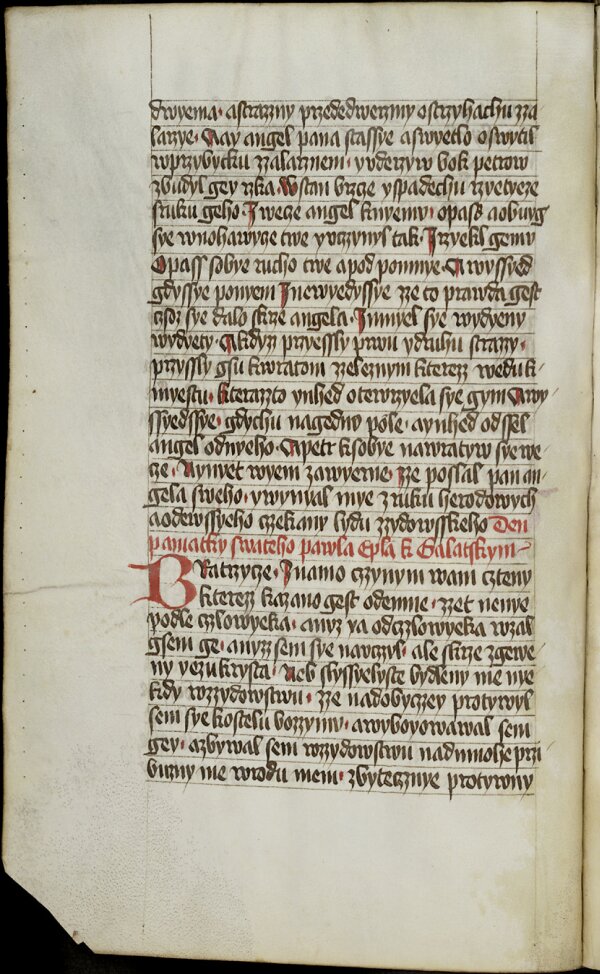 dwyema· astrazzny przededwerzmy ostrzyhachu zza
larzye· Aay angel pana stassye aswyetlo oswytil
wprzybycku zzalarznem· yvderzyw bok petrow
zbudyl gey rzka· Wstan brzcze yspadechu rzyetyeze
sruku geho· Iwecze angel knyemu· opass aobuyg
sye wnohawycze twe yvczynyl tak· Irzyekl gemu
Opass sobye rucho twe apod pomnye· Awyssyed
gdyssye ponyem Inewyedyssye zze to prawda gest
czsoz sye dalo skrze angela· Imnyel sye wydyeny
wydyety· Akdyz przyessly prwu ydruhu strazzy·
przyssly gsu kwratom zzeleznym kterezz wedu k
myestu· kterazzto ynhed otewrzyela sye gym Awy
ssyedssye· gdychu nagednu pole· aynhed odssel
angel odnyeho· Apetr ksobye nawratyw sye we
cze· Nynyet wyem zawyerne· zze poslal pan an
gela sweho· ywynyal mye zruku herodowych
aodewssyeho czekany lydu zzydowsskeho Den
pamatky swateho pawla Epla k Galatskym
BRatrzycze· Inamo czynym wam czteny
kterezz kazano gest odemne· zzet nenye
podle czlowyeka· anyz ya odczlowyeka wzal
gsem ge· anyzz sem sye nawczyl· ale skrze zgewe
ny yezukrysta· Neb slyssyelyste bydleny me nye
kdy wzzydowstwu· zze nadobyczzey protywyl
sem sye kostelu bozzymu· awyboyowawal sem
gey· azbywal sem wzzydowstwu nadmnohe przi
buzny me wrodu mem· zbytecznye protywny